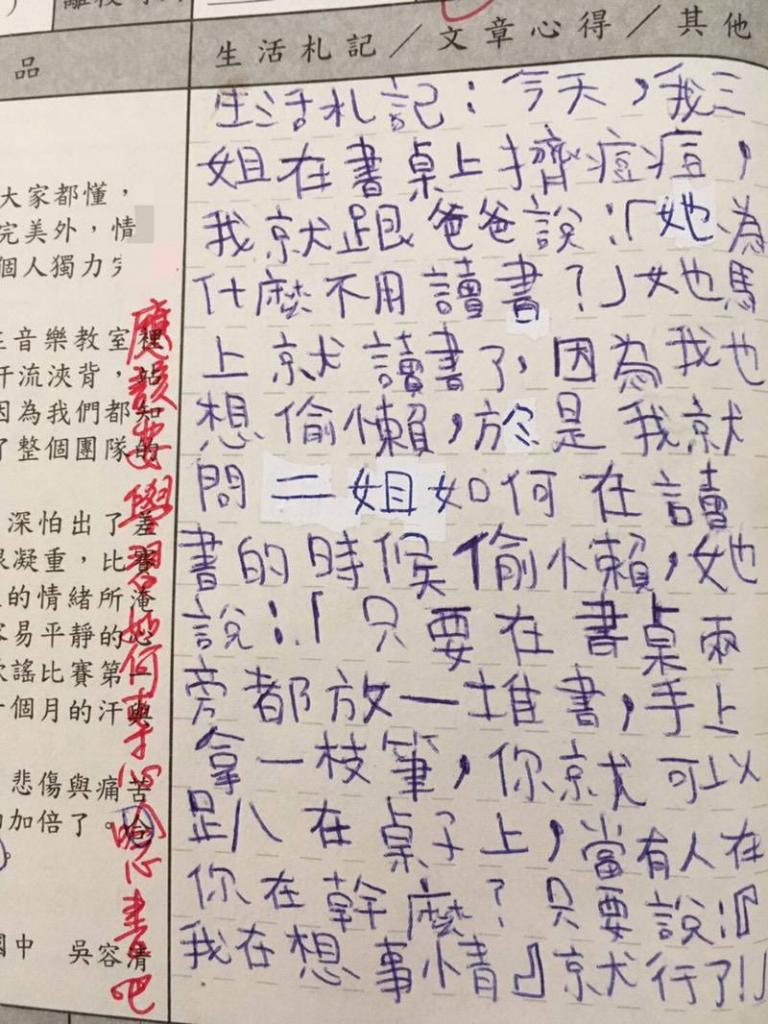 品
大家都懂，
完美外，情
個人獨力
音樂教室裡
汗流浹背，站
因為我們都知
了整個團隊的
深怕出了差
很凝重，比賽
的情緒所淹
容易平靜的心
謠比賽第一
個月的汗與
悲傷與痛苦
加倍了。
國中 吳容清
應該要學習如何專心唸書吧
生活札記／文章心得／其他
生活札記：今天，我三
姐在書桌上擠痘痘，
我就跟爸爸說：「她為
什麼不用讀書？」她馬
上就讀書了，因為我也
想偷懶，於是我就
問二姐如何在讀
書的時候偷懶，她
說：「只要在書桌兩
旁都放一堆書，手上
拿一枝筆，你就可以
趴在桌子上，當有人在
你在幹麼？只要說：『
我在想事情』就行了!」